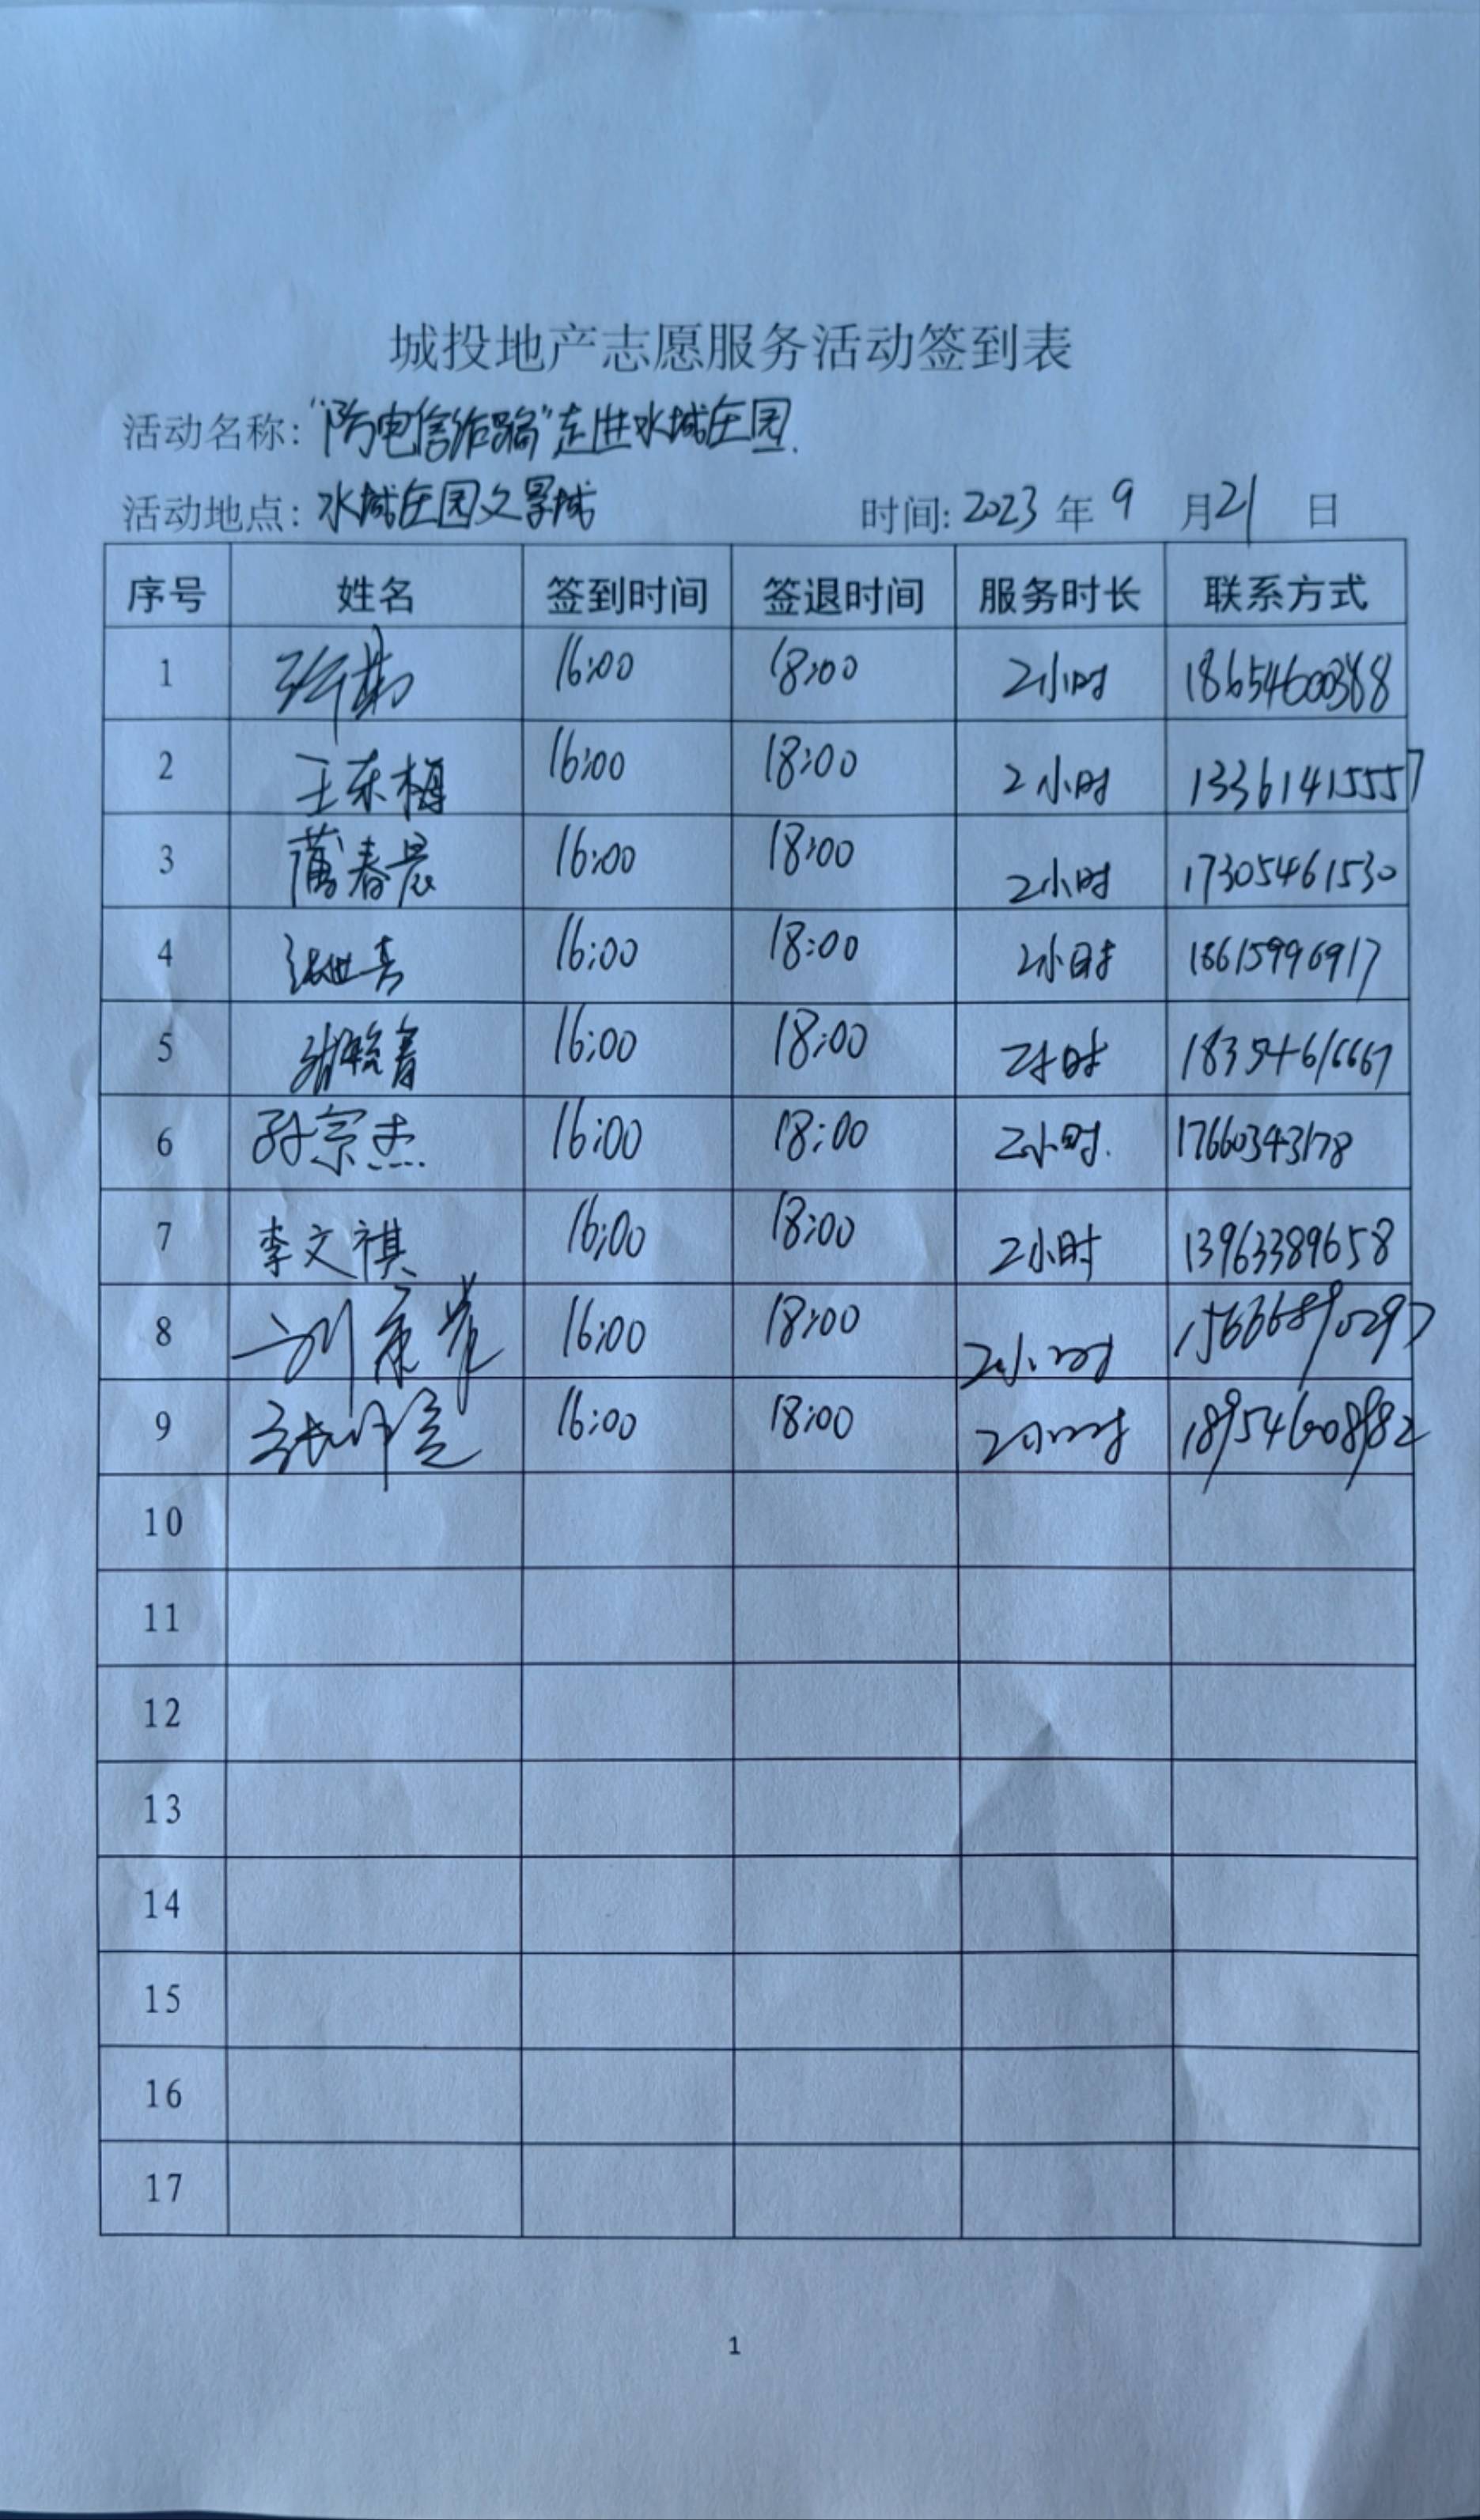 城投地产志愿服务活动签到表
活动名称：“防电信诈骗”走进水城庄园.
活动地点：水城庄园文景城 时间: 2023 年 9 月 21 日
序号 姓名 签到时间 签退时间 服务时长 联系方式
1 16:00 18:00 2小时 18654600388
2 王东梅 16:00 18:00 2小时 13361415557
3 蒲春晨 16:00 18:00 2小时 17305461530
4 16:00 18:00 2小时 18615996917
5 16:00 18:00 2小时 18354616667
6 孙宗杰 16:00 18:00 2小时. 17660343178
7 李文祺 16:00 18:00 2小时 13963389658
8 16:00 18:00 2小时 15666890297
9 16:00 18:00 2小时 18954608982
10
11
12
13
14
15
16
17
1